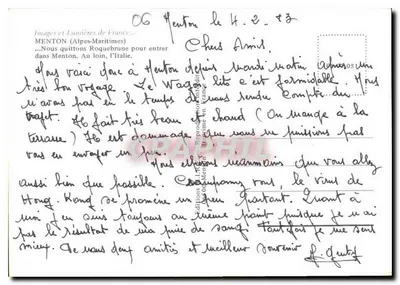 06 Menton le 4.2.73
Images et Lumières de France...
MENTON (Alpes-Maritimes)
...Nous quittons Roquebrune pour entrer
dans Menton. Au loin, l'Italie.
Chers Amis.
Nous voici donc à Menton depuis mardi matin après un
très bon voyage. Le Wagon lits c'est formidable. Nous
n'avons pas eu le temps de nous rendre compte du
trajet. Il fait très beau et chaud (On mange à la
terrasse) Il est dommage que nous ne puissions pas
vous en envoyer un peu.
Nous espérons néanmoins que vous allez
aussi bien que possible. vous, le virus de
Hong. Kong se promène un peu partout. Quant à
moi j'en suis toujours au même point puisque je n'ai
pas le résultat de ma prise de sang. Toutefois je me sens
mieux. De nous deux amitiés et meilleur souvenir